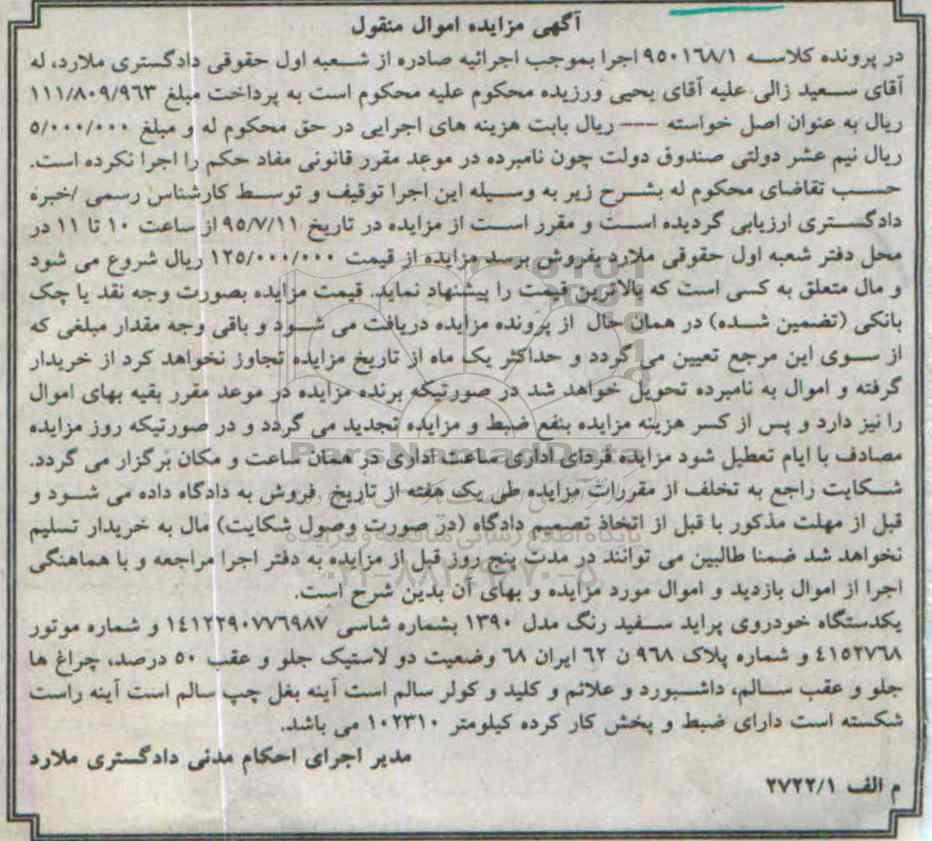 آگهی مزایده اموال منقول
در پرونده کلاسه ۹۵۰۱۶۸/۱ اجرا بموجب اجرائیه صادره از شعبه اول حقوقی دادگستری ملارد، له
آقای سعید زالی علیه آقای یحیی ورزیده محکوم علیه محکوم است به پرداخت مبلغ ۱۱۱/۸۰۹/۹۶۳
ریال به عنوان اصل خواسته --- ریال بابت هزینه های اجرایی در حق محکوم له و مبلغ ۵/۰۰۰/۰۰۰
ریال نیم عشر دولتی صندوق دولت چون نامبرده در موعد مقرر قانونی مفاد حکم را اجرا نکرده است.
حسب تقاضای محکوم له بشرح زیر به وسیله این اجرا توقیف و توسط کارشناس رسمی /خبره
دادگستری ارزیابی گردیده است و مقرر است از مزایده در تاریخ ۹۵/۷/۱۱ از ساعت ۱۰ تا ۱۱ در
محل دفتر شعبه اول حقوقی ملارد بفروش برسد مزایده از قیمت ۱۲۵/۰۰۰/۰۰۰ ریال شروع می شود
و مال متعلق به کسی است که بالاترین قیمت را پیشنهاد نماید. قیمت مزایده بصورت وجه نقد یا چک
بانکی (تضمین شده) در همان حال از پرونده مزایده دریافت می شود و باقی وجه مقدار مبلغی که
از سوی این مرجع تعیین می گردد و حداکثر یک ماه از تاریخ مزایده تجاوز نخواهد کرد از خریدار
گرفته و اموال به نامبرده تحویل خواهد شد در صورتیکه برنده مزایده در موعد مقرر بقیه بهای اموال
را نیز دارد و پس از کسر هزینه مزایده بنفع ضبط و مزایده تجدید می گردد و در صورتیکه روز مزایده
مصادف با ایام تعطیل شود مزایده فردای اداری ساعت اداری در همان ساعت و مکان برگزار می گردد.
شکایت راجع به تخلف از مقررات مزایده طی یک هفته از تاریخ فروش به دادگاه داده می شود و
قبل از مهلت مذکور با قبل از اتخاذ تصمیم دادگاه (در صورت وصول شکایت) مال به خریدار تسلیم
نخواهد شد ضمنا طالبین می توانند در مدت پنج روز قبل از مزایده به دفتر اجرا مراجعه و با هماهنگی
اجرا از اموال بازدید و اموال مورد مزایده و بهای آن بدین شرح است.
یکدستگاه خودروی پراید سفید رنگ مدل ۱۳۹۰ بشماره شاسی ۱۴۱۲۲۹۰۷۷۶۹۸۷ و شماره موتور
۴۱۵۲۷۶۸ و شماره پلاک ۹۶۸ ن ۶۲ ایران ۶۸ وضعیت دو لاستیک جلو و عقب ۵۰ درصد، چراغ ها
جلو و عقب سالم، داشبورد و علائم و کلید و کولر سالم است آینه بغل چپ سالم است آینه راست
شکسته است دارای ضبط و پخش کار کرده کیلومتر ۱۰۲۳۱۰ می باشد.
مدیر اجرای احکام مدنی دادگستری ملارد
م الف ۲۷۲۲/۱